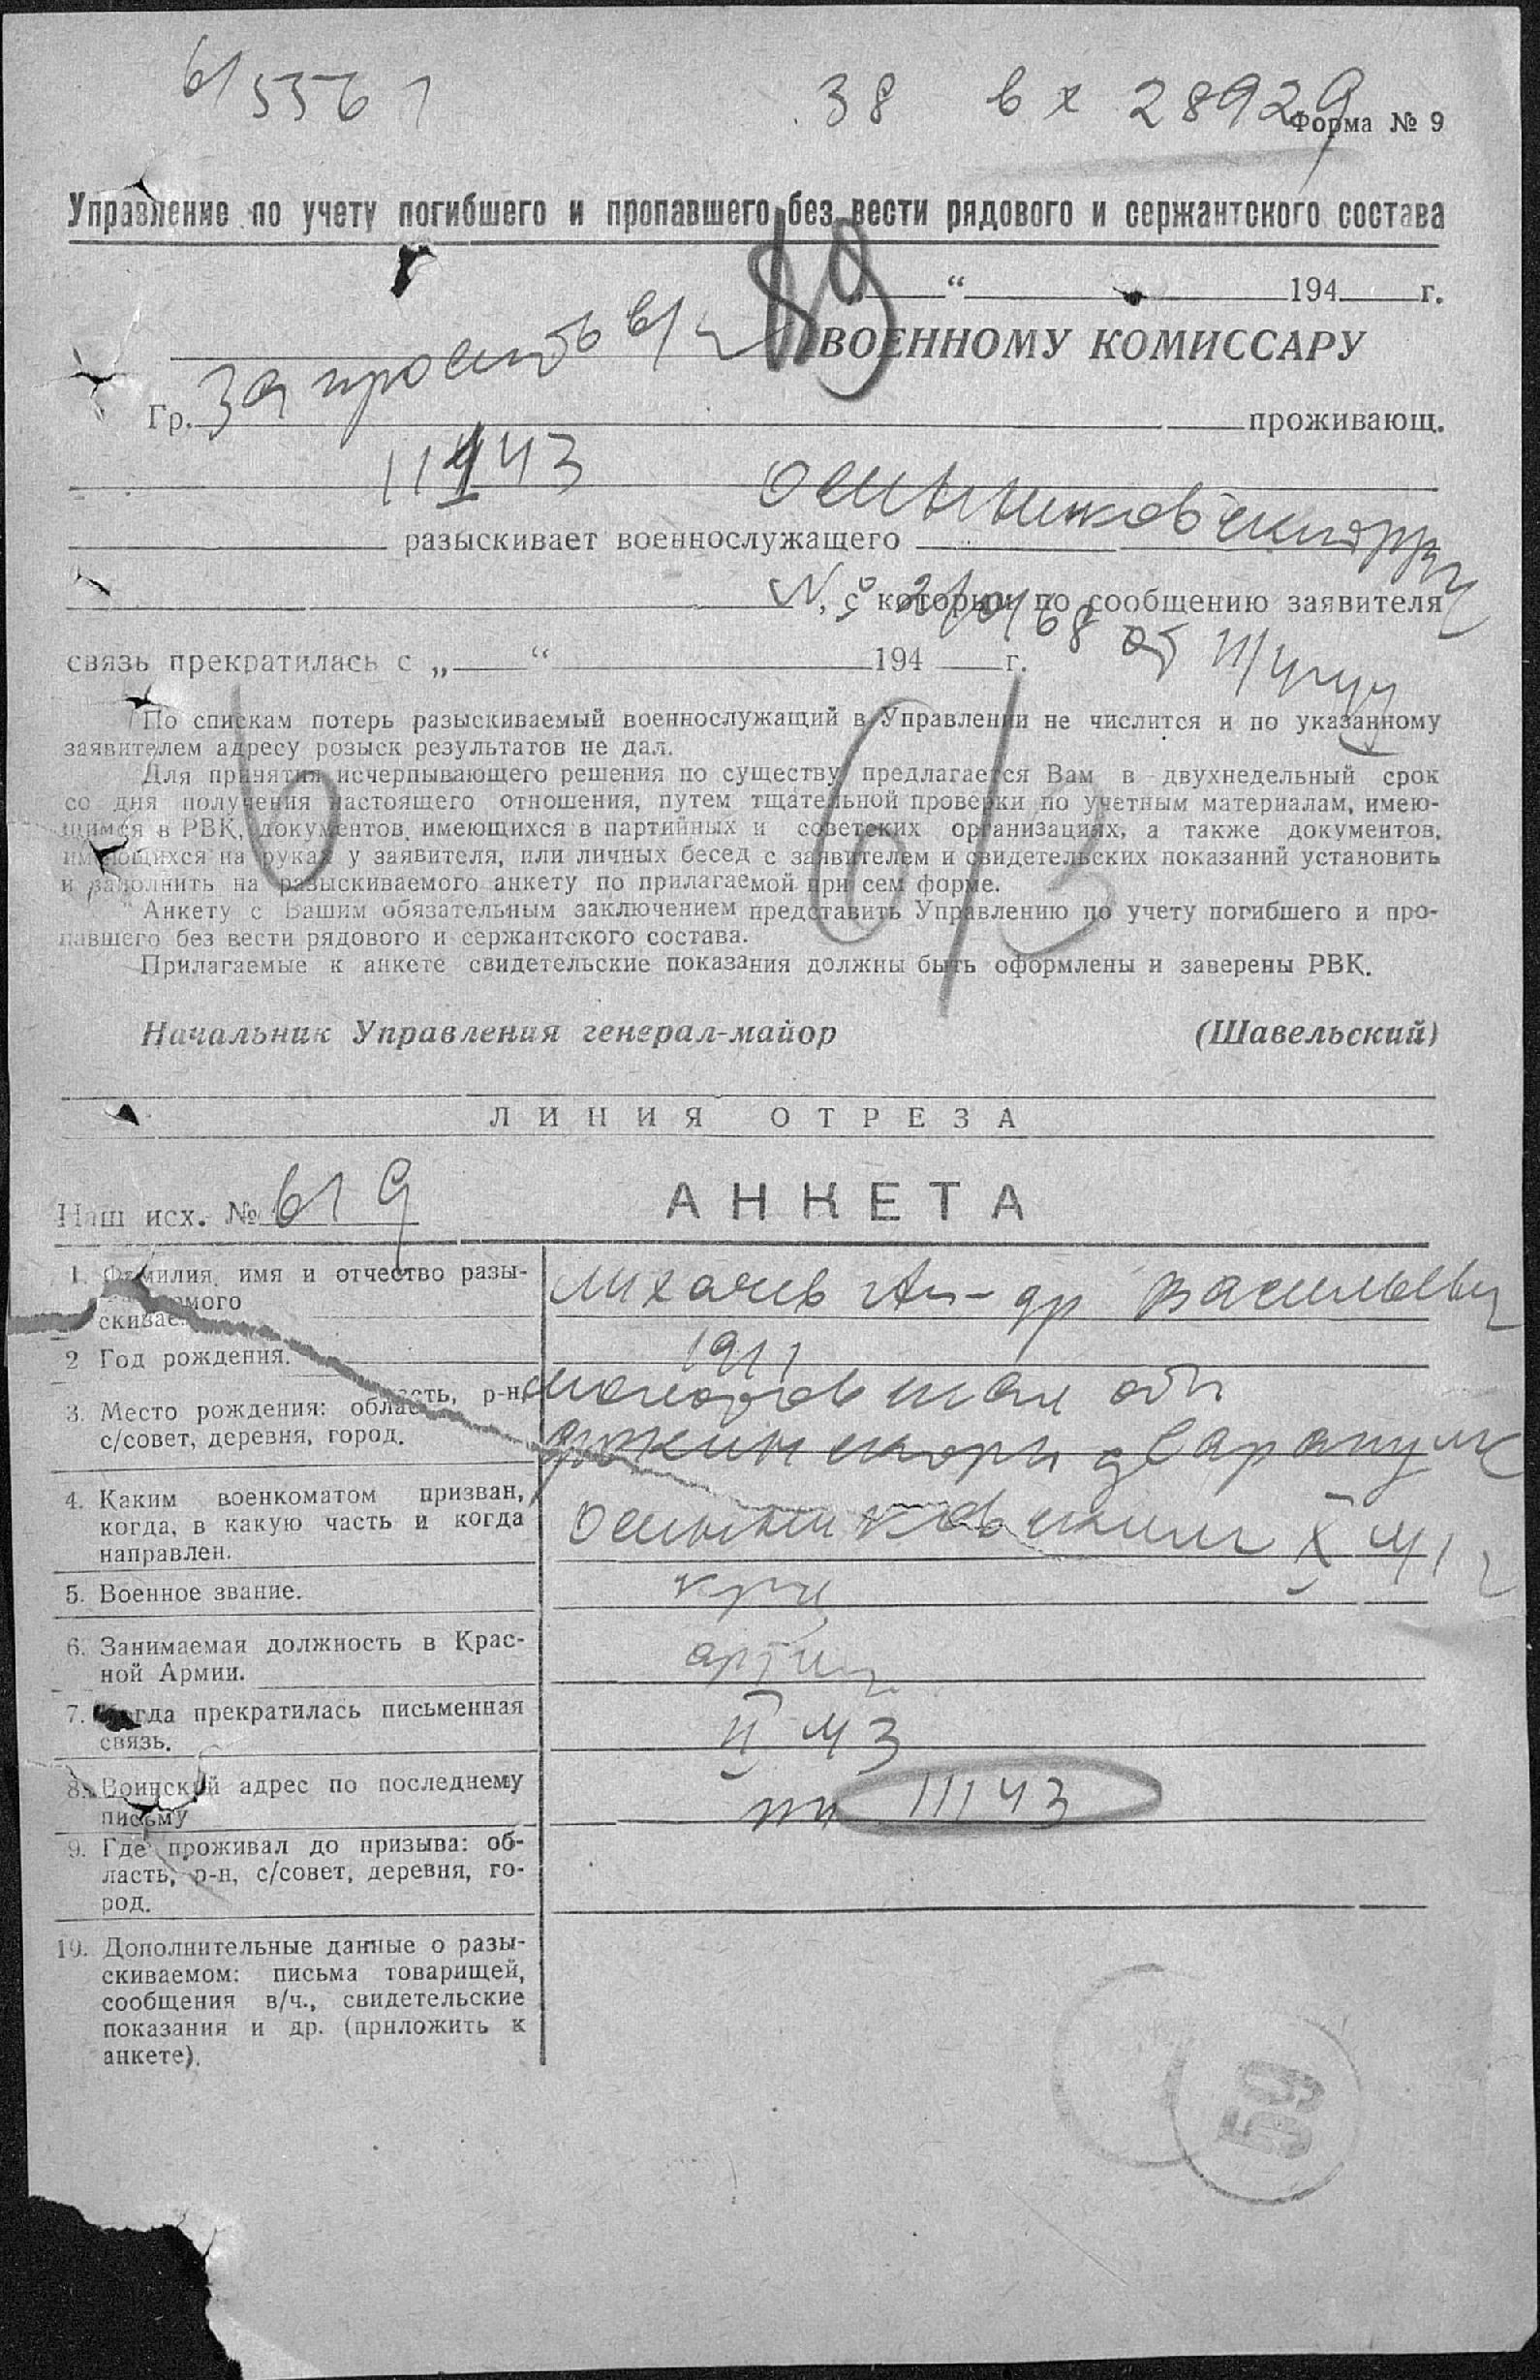 б/з 5561 38 вх 28929
Форма № 9
Управление по учету погибшего и пропавшего без вести рядового и сержантского состава
“ 194 г.
Запросить в/ч
ВОЕННОМУ КОМИССАРУ
Гр. проживающ.
11143
разыскивает военнослужащего
№ , с которым по сообщению заявителя
связь прекратилась с „ “ 194 г.
По спискам потерь разыскиваемый военнослужащий в Управлении не числится и по указанному
заявителем адресу розыск результатов не дал.
Для принятия исчерпывающего решения по существу предлагается Вам в двухнедельный срок
со дня получения настоящего отношения, путем тщательной проверки по учетным материалам, имею-
щимся в РВК, документов, имеющихся в партийных и советских организациях, а также документов,
имеющихся на руках у заявителя, или личных бесед с заявителем и свидетельских показаний установить
и заполнить на разыскиваемого анкету по прилагаемой при сем форме.
Анкету с Вашим обязательным заключением представить Управлению по учету погибшего и про-
павшего без вести рядового и сержантского состава.
Прилагаемые к анкете свидетельские показания должны быть оформлены и заверены РВК.
Начальник Управления генерал-майор (Шавельский)
ЛИНИЯ ОТРЕЗА
Наш исх. № 619
АНКЕТА
1. Фамилия, имя и отчество разы-
скиваемого
Лихачев Ал-др Васильевич
2 Год рождения.
1911
3. Место рождения: область, р-н,
с/совет, деревня, город.
обл
4. Каким военкоматом призван,
когда, в какую часть и когда
направлен.
Осинниковским X 41 г
5. Военное звание.
кр-ц
6. Занимаемая должность в Крас-
ной Армии.
7. Когда прекратилась письменная
связь.
II 43
8. Воинский адрес по последнему
письму
пп 11143
9. Где проживал до призыва: об-
ласть, р-н, с/совет, деревня, го-
род.
10. Дополнительные данные о разы-
скиваемом: письма товарищей,
сообщения в/ч., свидетельские
показания и др. (приложить к
анкете).
59